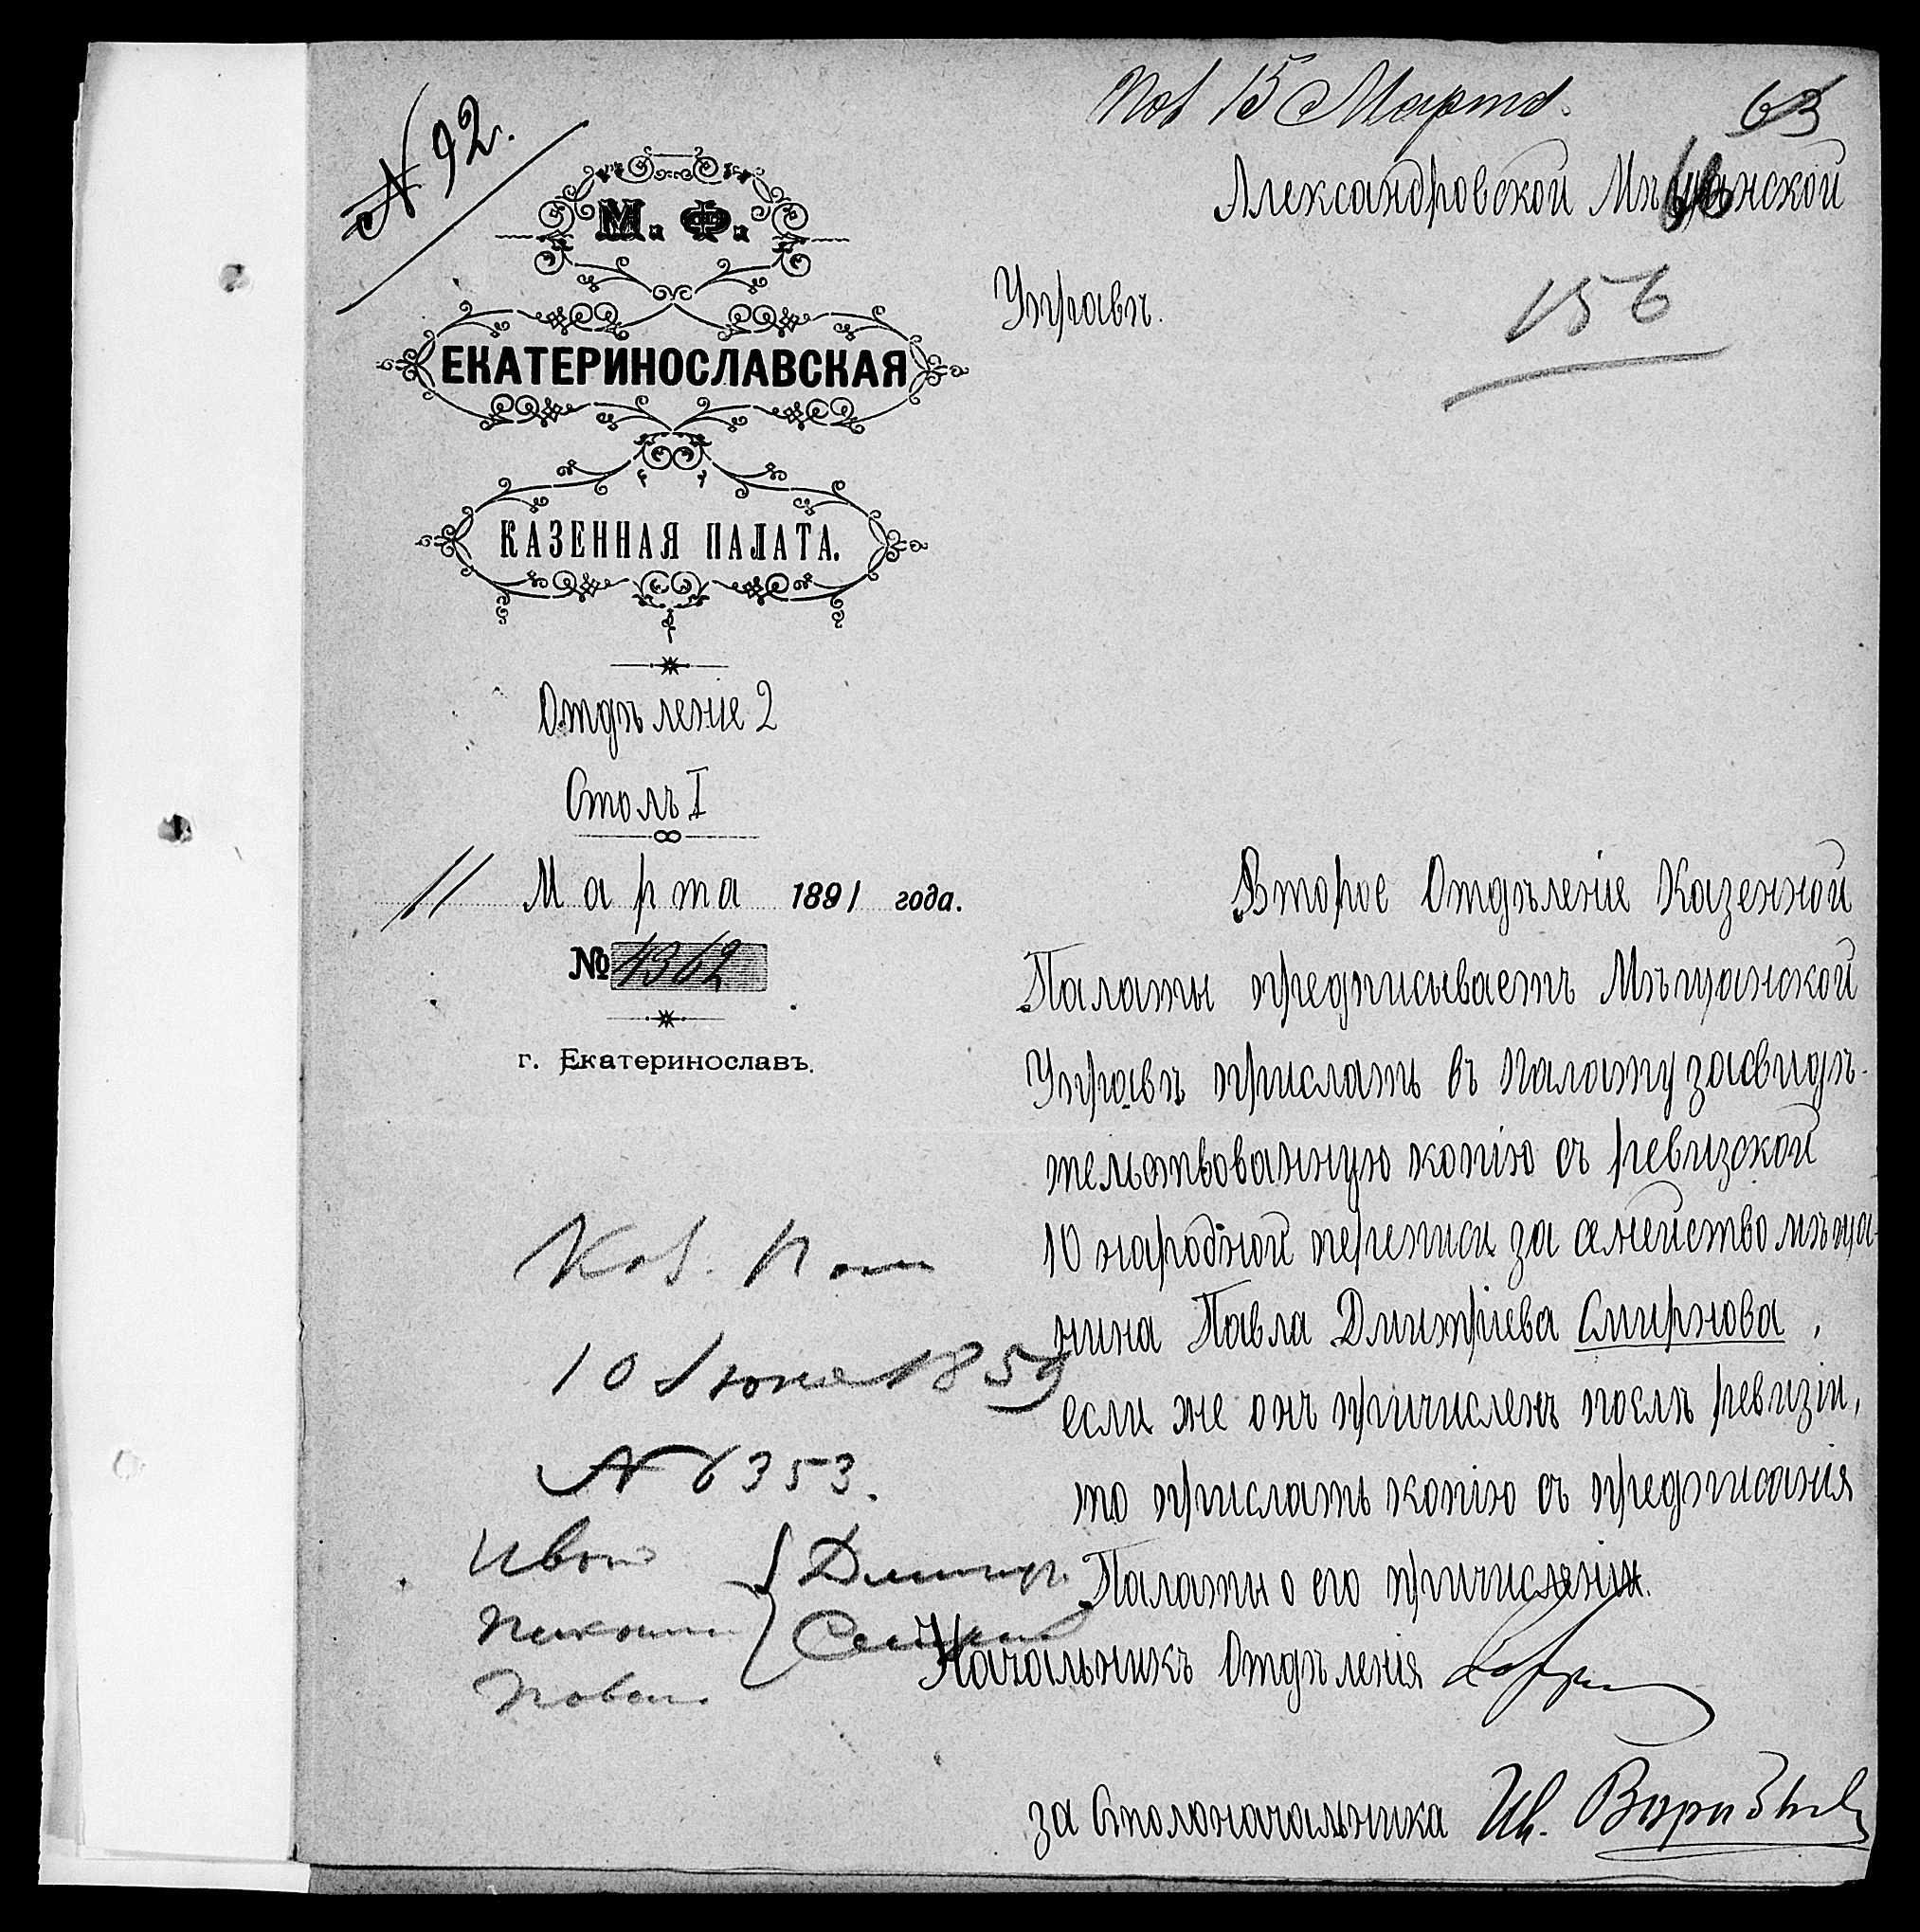 № 92.
Пол 15 Марта.
63
Александровской Мѣщанской
66
Управѣ.
156
М. Ф.
ЕКАТЕРИНОСЛАВСКАЯ
КАЗЕННАЯ ПАЛАТА.
Отдѣленіе 2
Столъ I
11 Марта 1891 года.
№ 4362
г. Екатеринославъ.
Второе Отдѣленіе Казенной
Палаты предписываетъ Мѣщанской
Управѣ прислать въ палату засвидѣ-
тельствованную копію съ ревизской
10 народной переписи за семейство мѣща-
нина Павла Дмитріева Смирнова,
если же онъ причисленъ послѣ ревизіи,
то прислать копію съ предписанія
Палаты о его причисленіи.
Каз. Пал
10 Іюня 1859
№ 6353.
Иван
Павел
Дмитр.
Начальникъ Отдѣленія
за Столоначальника Ив. Воробьев